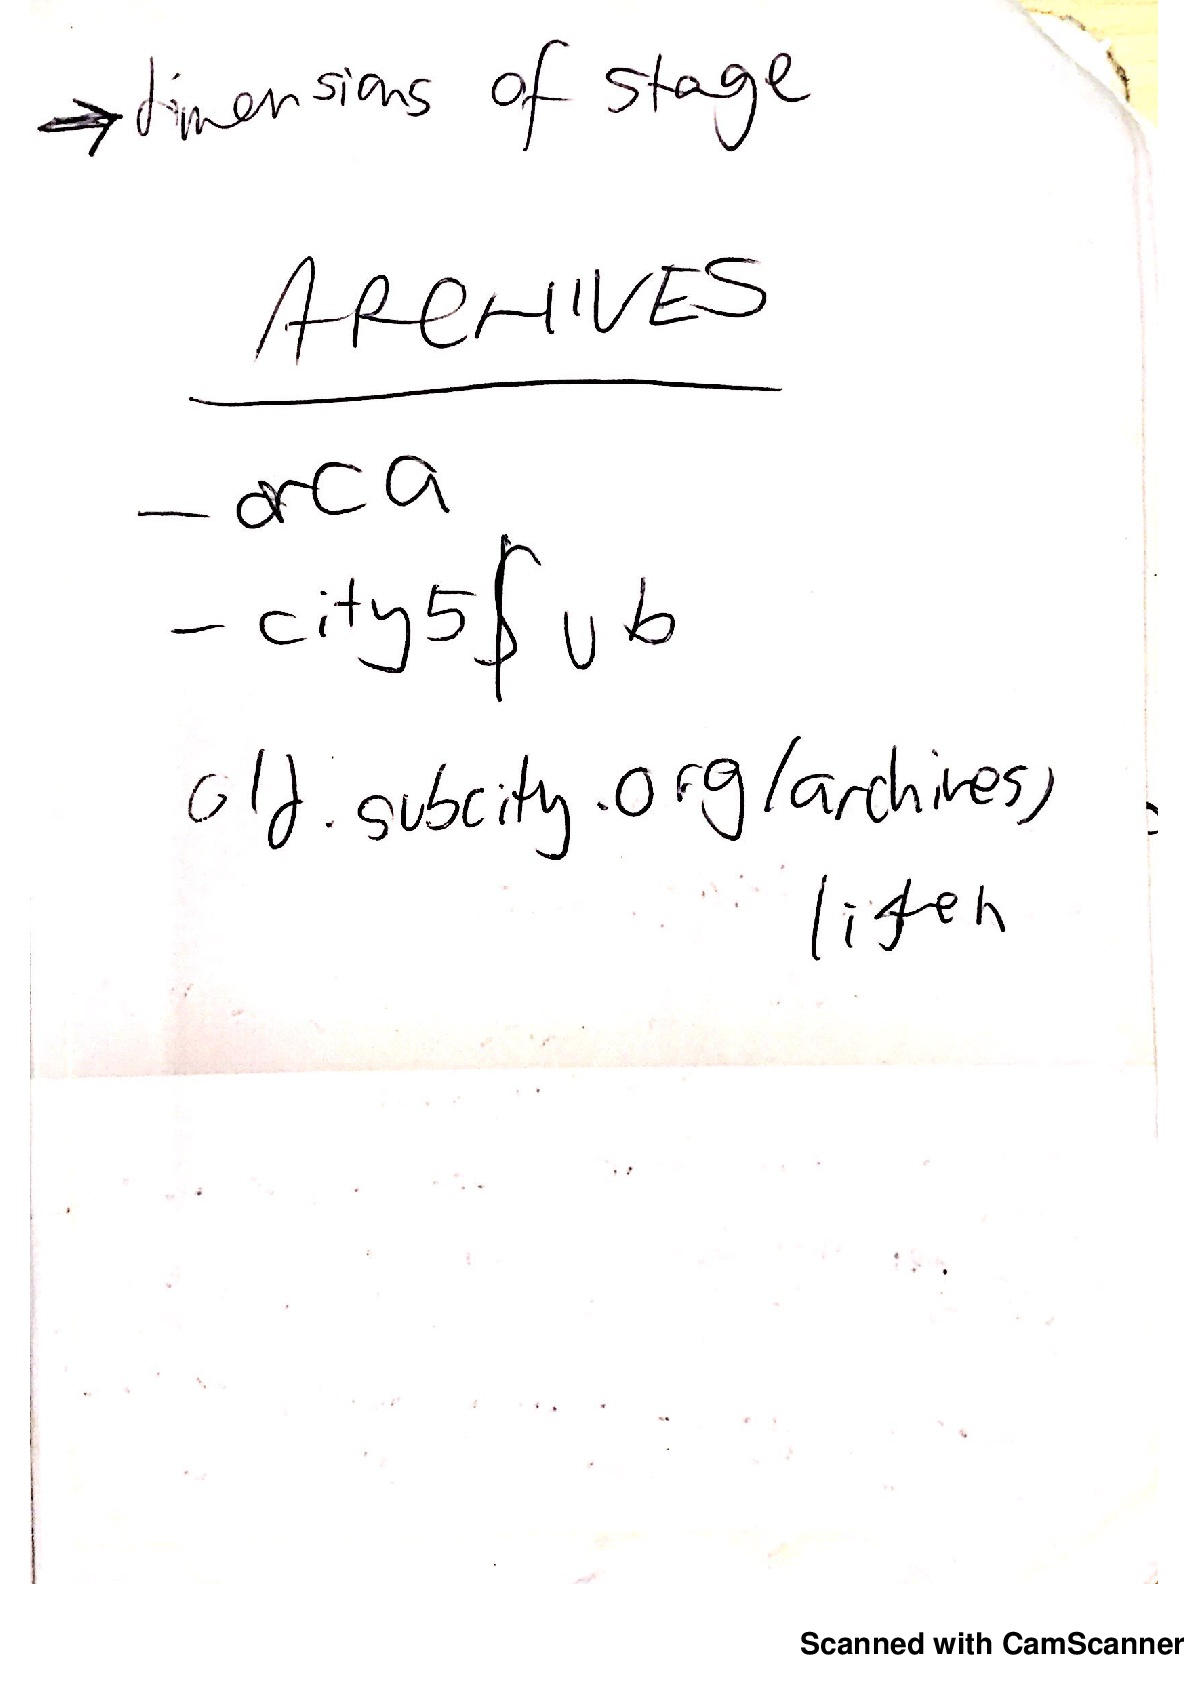 →dimensions of stage
ARCHIVES
- orca
- city5$ub
old.subcity.org/archives/
listen
Scanned with CamScanner